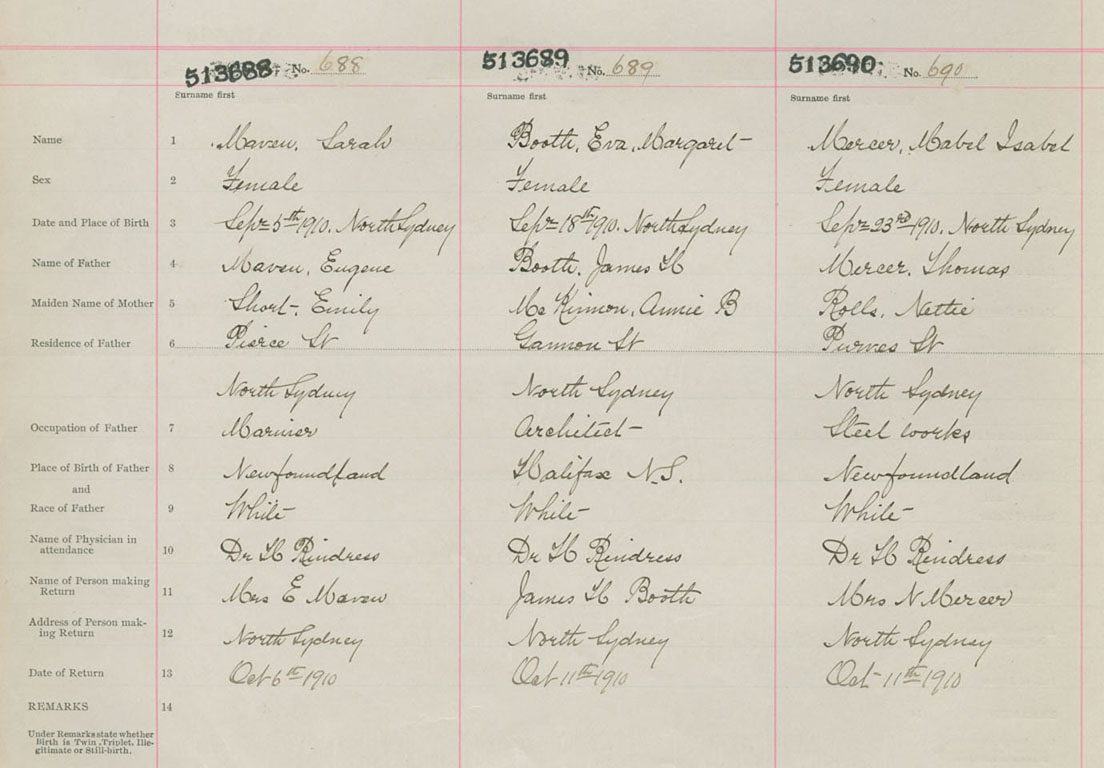 513688 No. 688 513689 No. 689 513690 No. 690
Surname first Surname first Surname first
Name 1 Maven, Sarah Booth, Eva, Margaret Mercer, Mabel Isabel
Sex 2 Female Female Female
Date and Place of Birth 3 Sepr 5th 1910. North Sydney Sepr 18th 1910. North Sydney Sepr 23rd 1910. North Sydney
Name of Father 4 Maven, Eugene Booth, James H Mercer, Thomas
Maiden Name of Mother 5 Short, Emily Mc Kinnon, Annie B Rolls, Nettie
Residence of Father 6 Pierce St Gannon St Purves St
North Sydney North Sydney North Sydney
Occupation of Father 7 Mariner Architect Steel works
Place of Birth of Father 8 Newfoundland Halifax N.S. Newfoundland
and
Race of Father 9 White White White
Name of Physician in
attendance 10 Dr H Rindress Dr H Rindress Dr H Rindress
Name of Person making
Return 11 Mrs E Maven James H Booth Mrs N Mercer
Address of Person mak-
ing Return 12 North Sydney North Sydney North Sydney
Date of Return 13 Oct 6th 1910 Oct 11th 1910 Oct 11th 1910
REMARKS 14
Under Remarks state whether
Birth is Twin, Triplet, Ille-
gitimate or Still-birth.